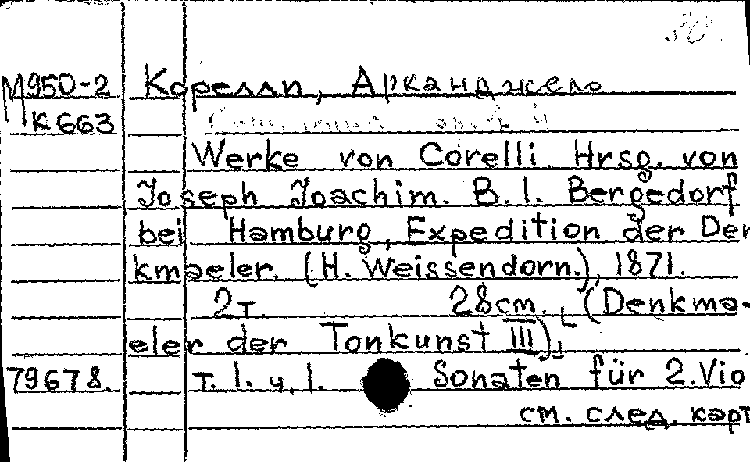 30.
М950-2 Корелли, Арканджело
К663
Werke von Corelli. Hrsg. von
Joseph Joachim. B. 1. Bergedorf
bei Hamburg, Expedition der Den
kmaeler. (H. Weissendorn.), 1871.
2т. 28cm. (Denkma-
eler der Tonkunst III)
79678. т. 1. ч. 1. Sonaten für 2. Vio
см. след. карт